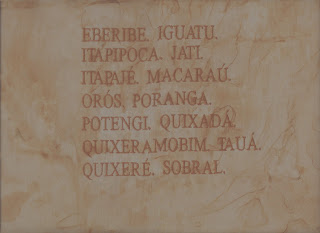 EBERIBE. IGUATU.
ITAPIPOCA. JATI.
ITAPAJÉ. MACARAÚ.
ORÓS, PORANGA.
POTENGI. QUIXADÁ.
QUIXERAMOBIM. TAUÁ.
QUIXERÉ. SOBRAL.